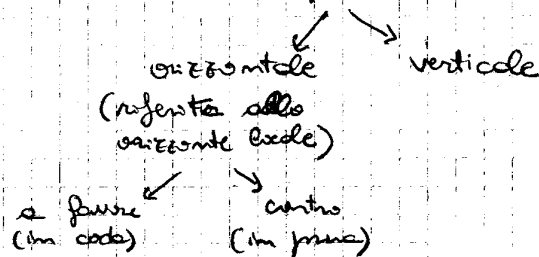 orizzontale verticale
(riferita allo
orizzonte locale)
a favore contro
(in coda) (in prua)